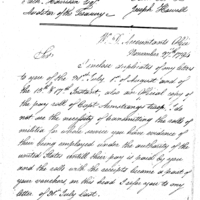 Joseph Howell
Solicitor of the Treasury
W. D. Accountants Office
November 27th 1794
Sir
I enclose duplicates of my letters
to you of the 31st July 1st of August and of
the 18th & 19th Instant, also an official copy of
the pay roll of Capt Armstrongs Troop. I do not
see the necessity of transmitting the rolls of
militia for whose move you have evidence of
their being employed under the authority of the
united States untill their pay is paid by you
and the rolls with the receipts became a part of
your vouchers, on this head I refer you to my
letter of 31 July last.